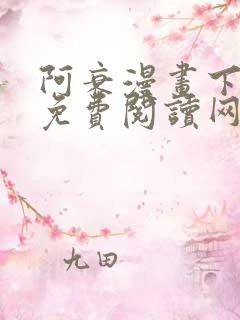 阿衰漫畫下
免費閱讀网
九田